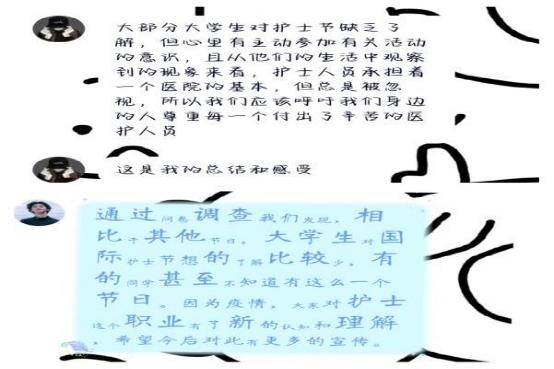 大部分大学生对护士节缺乏了
解，但心里有主动参加有关活动
的意识，且从他们的生活中观察
到的现象来看，护士人员承担着
一个医院的基本，但总是被忽
视，所以我们应该呼吁我们身边
的人尊重每一个付出了辛苦的医
护人员
这是我的总结和感受
通过问卷调查我们发现，相
比于其他节日。大学生对国
际护士节想的了解比较少，有
的同学甚至不知道有这么一个
节日。因为疫情，大家对护士
这个职业有了新的认知和理解
，希望今后对此有更多的宣传。